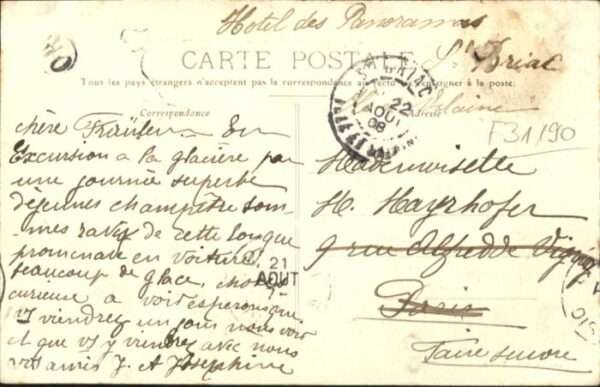 Hotel des Panoramas
St Briac
CARTE POSTALE
Tous les pays étrangers n'acceptent pas la correspondance au recto se renseigner à la poste
Correspondance
Adresse
ST BRIAC
22
AOUT
08
F31/90
chère Fräulein En
Excursion a la glacière par
une journée superbe
déjeuner champêtre som-
mes ravis de cette longue
promenade en voiture
21
AOUT
beaucoup de glace, chose
curieuse a voir esperons que
vs viendrez un jour nous voir
et que vs y viendrez avec nous
vos amis J. et Joséphine
Mademoiselle
M. Mayrhofer
9 rue Alfred de Vigny
Paris
Faire suivre